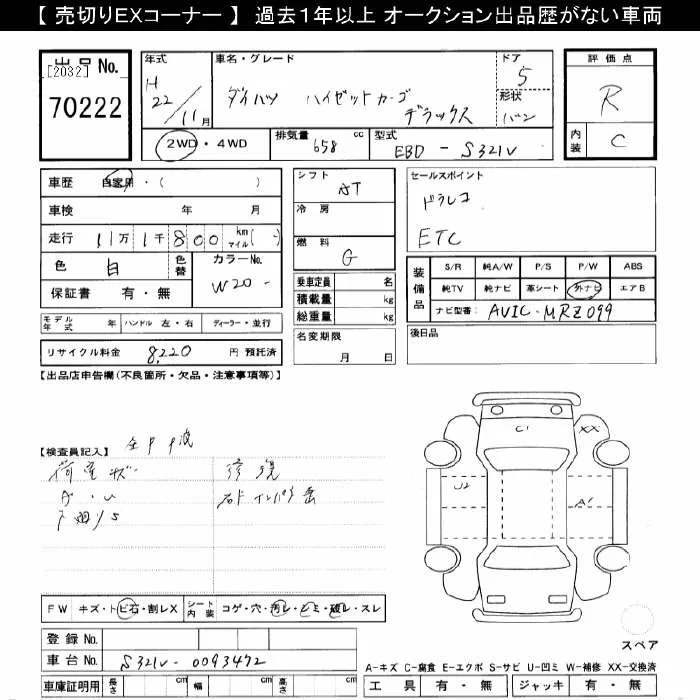 【 売切りEXコーナー 】 過去1年以上 オークション出品歴がない車両
出品 No.
[2032]
70222
年式
H 22/11 月
車名・グレード
ダイハツ ハイゼットカーゴ
デラックス
ドア
5
形状
バン
評価点
R
内装
C
2WD・4WD
排気量 658 cc
型式 EBD - S321V
車歴 自家用・( )
車検 年 月
走行 11万1千800 km マイル(-)
色 白 色替
カラーNo. W20-
保証書 有・無
シフト AT
冷房
燃料 G
乗車定員 名
積載量 kg
総重量 kg
セールスポイント
ドラレコ
ETC
装備品
S/R 純A/W P/S P/W ABS
純TV 純ナビ 革シート 外ナビ エアB
ナビ型番: AVIC-MRZ099
モデル年式 年 ハンドル 左・右 ディーラー・並行
リサイクル料金 8,220 円 預託済
名変期限
月 日
後日品
【出品店申告欄(不良箇所・欠品・注意事項等)】
【検査員記入】
C1
XX
U2
A1
FW キズ・トビ石・割レX シート内装 コゲ・穴・汚レ・シミ・破レ・スレ
登録 No.
車台 No. S321V-0093472
車庫証明用 長さ cm 幅 cm 高さ cm
スペア
A-キズ C-腐食 E-エクボ S-サビ U-凹ミ W-補修 XX-交換済
工具 有・無 ジャッキ 有・無